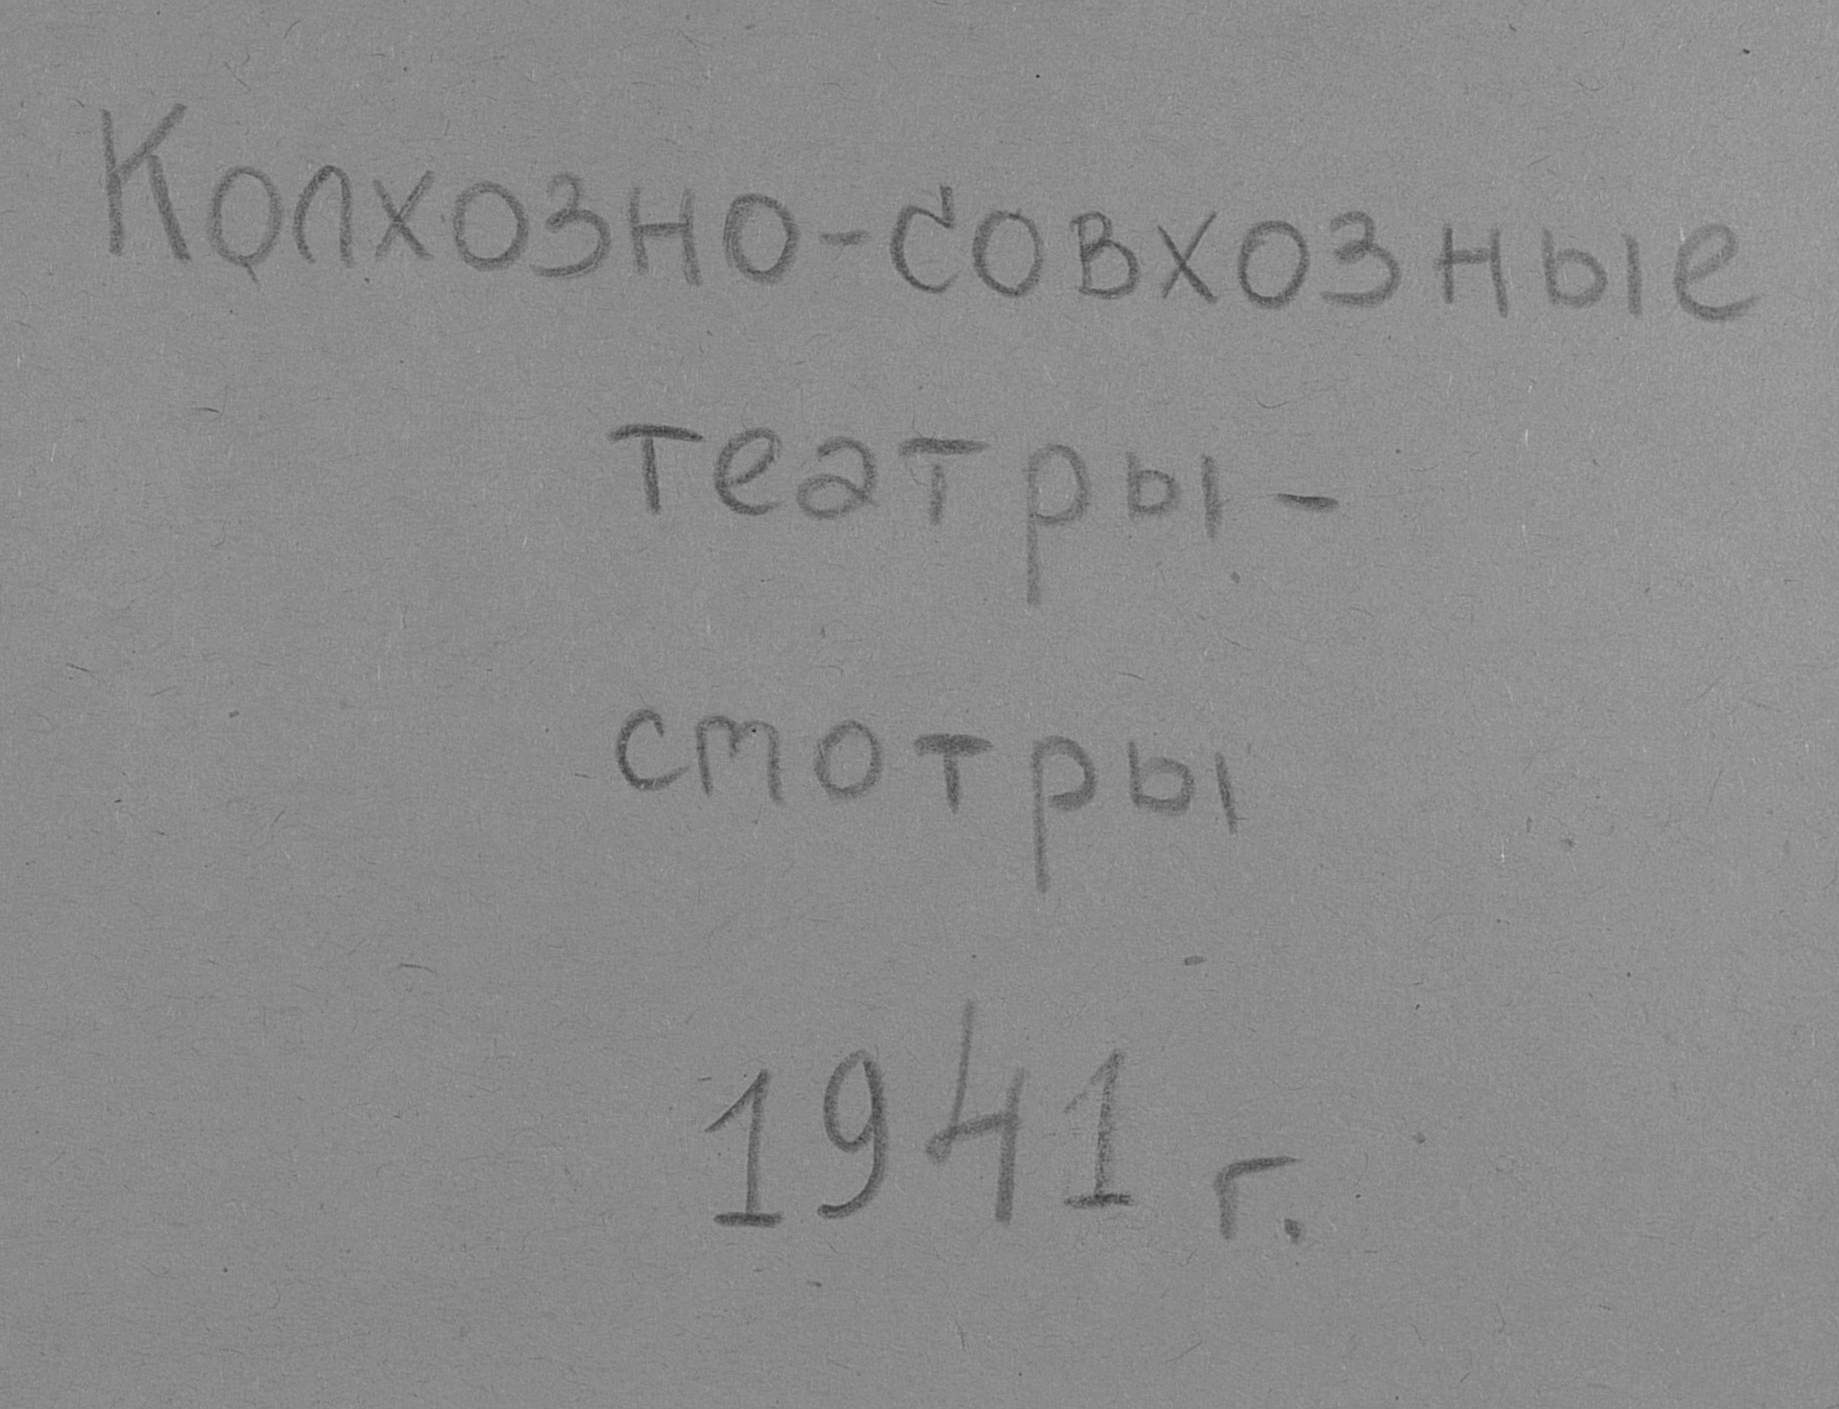 Колхозно-совхозные
театры-
смотры
1941 г.